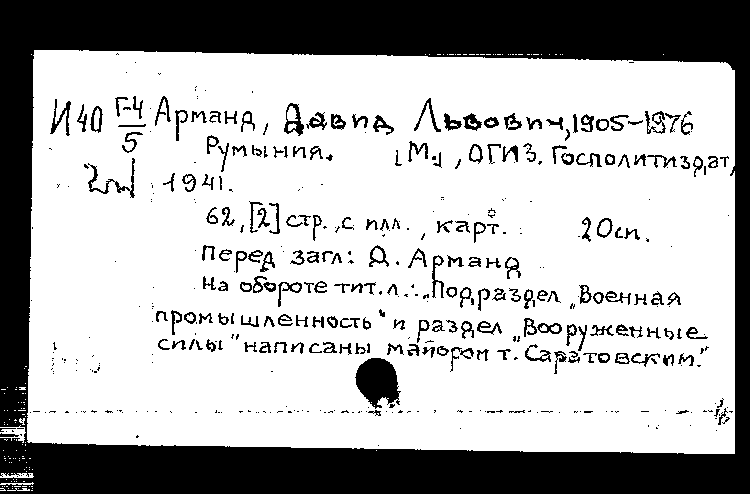 И40 Г-4/5 Арманд, Давид Львович, 1905-1976
Румыния. [М.], ОГИЗ. Госполитиздат,
1941.
62, [2] стр., с илл., карт. 20сп.
Перед загл: Д. Арманд
На обороте тит. л.: „Подраздел „Военная
промышленность" и раздел „Вооруженные
силы" написаны майором т. Саратовским."